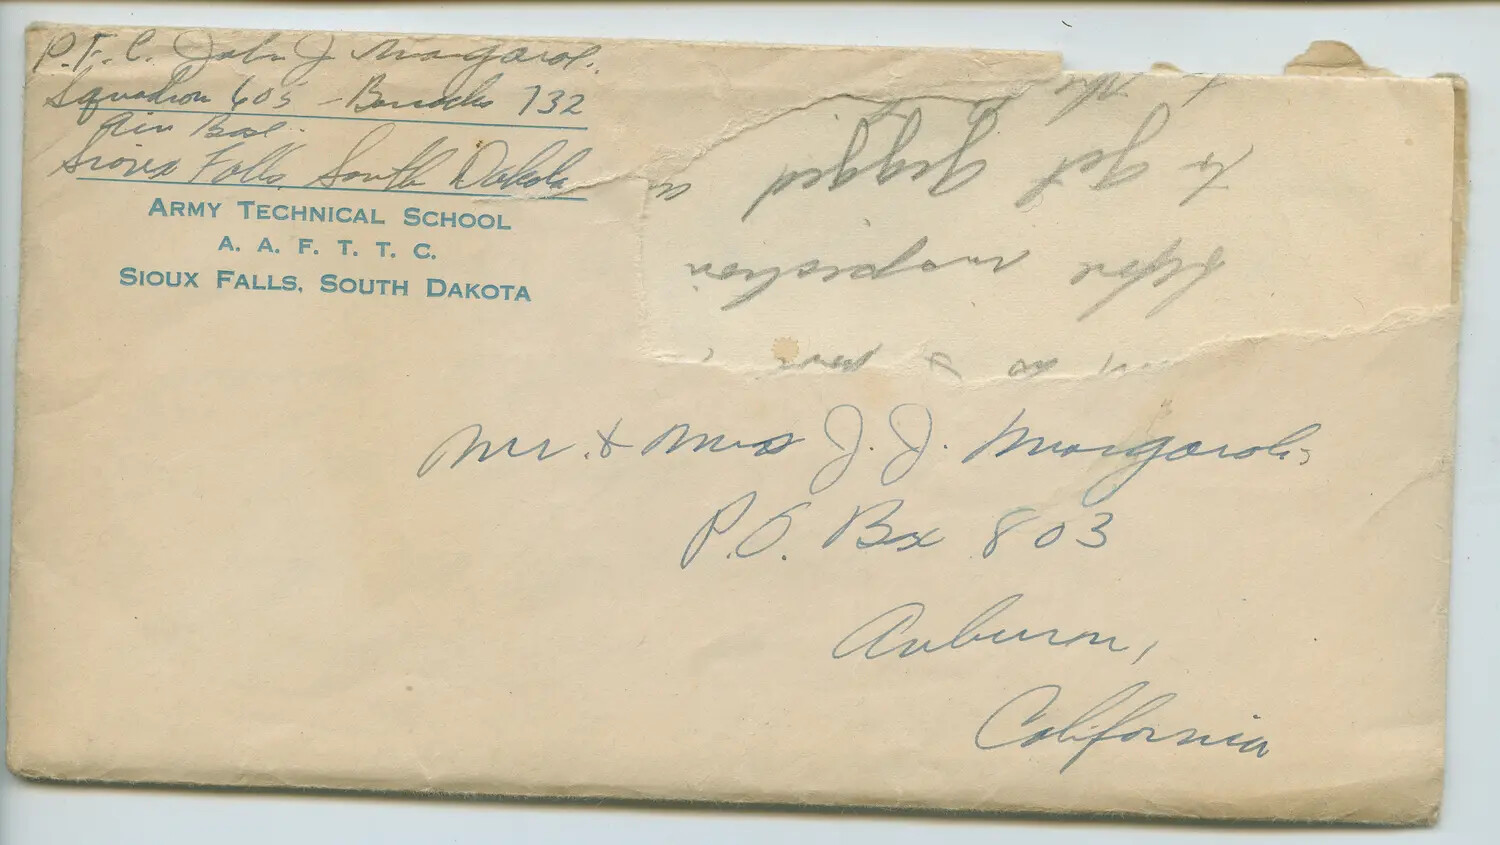 P.F.C. John J Margarol.
Squadron 605 - Barracks 732
Air Base.
Sioux Falls, South Dakota
ARMY TECHNICAL SCHOOL
A. A. F. T. T. C.
SIOUX FALLS, SOUTH DAKOTA
before inspection
to get gigged
the
Mr. & Mrs J. J. Margarol,
P.O. Box 803
Auburn,
California